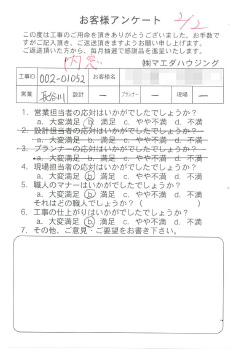 お客様アンケート 2/2
この度は工事のご用命を頂きありがとうございました。お手数で
すがご記入頂き、ご返送頂きますようお願い申し上げます。
ご返送頂いた方から、毎月抽選で感謝品を進呈いたします。
内窓 ㈱マエダハウジング
工事ID 002-01052 お客様名
営業 長谷川 設計 ー プランナー ー 現場 ー
1. 営業担当者の応対はいかがでしたでしょうか?
a. 大変満足 b. 満足 c. やや不満 d. 不満
2. 設計担当者の応対はいかがでしたでしょうか?
a. 大変満足 b. 満足 c. やや不満 d. 不満
3. プランナーの応対はいかがでしたでしょうか?
a. 大変満足 b. 満足 c. やや不満 d. 不満
4. 現場担当者の応対はいかがでしたでしょうか?
a. 大変満足 b. 満足 c. やや不満 d. 不満
5. 職人のマナーはいかがでしたでしょうか?
a. 大変満足 b. 満足 c. やや不満 d. 不満
それはどの職人でしょうか?( )
6. 工事の仕上がりはいかがでしたでしょうか?
a. 大変満足 b. 満足 c. やや不満 d. 不満
7. その他、ご意見・ご要望をお書き下さい。